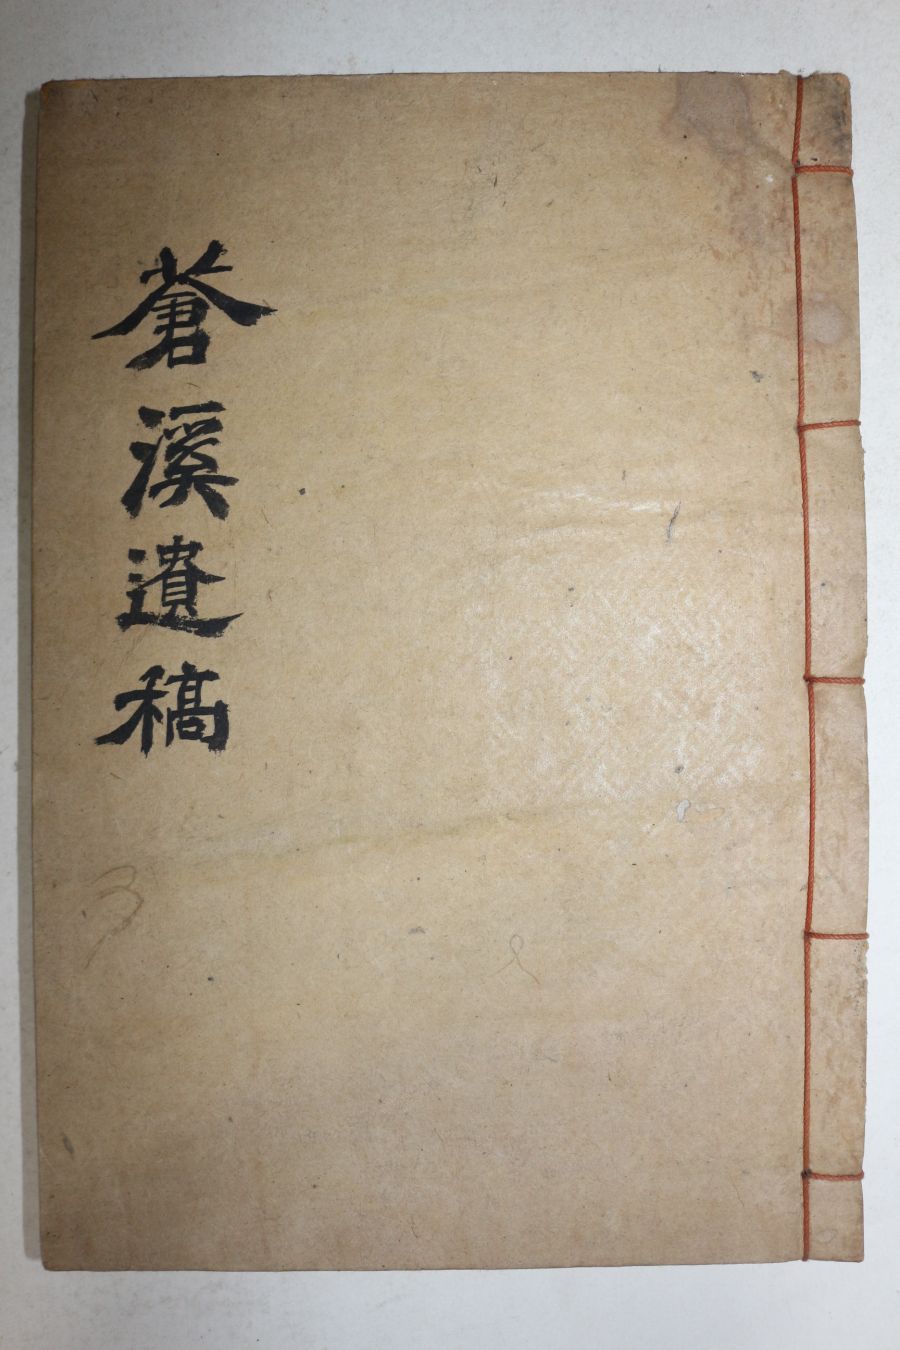 蒼溪遺稿
3